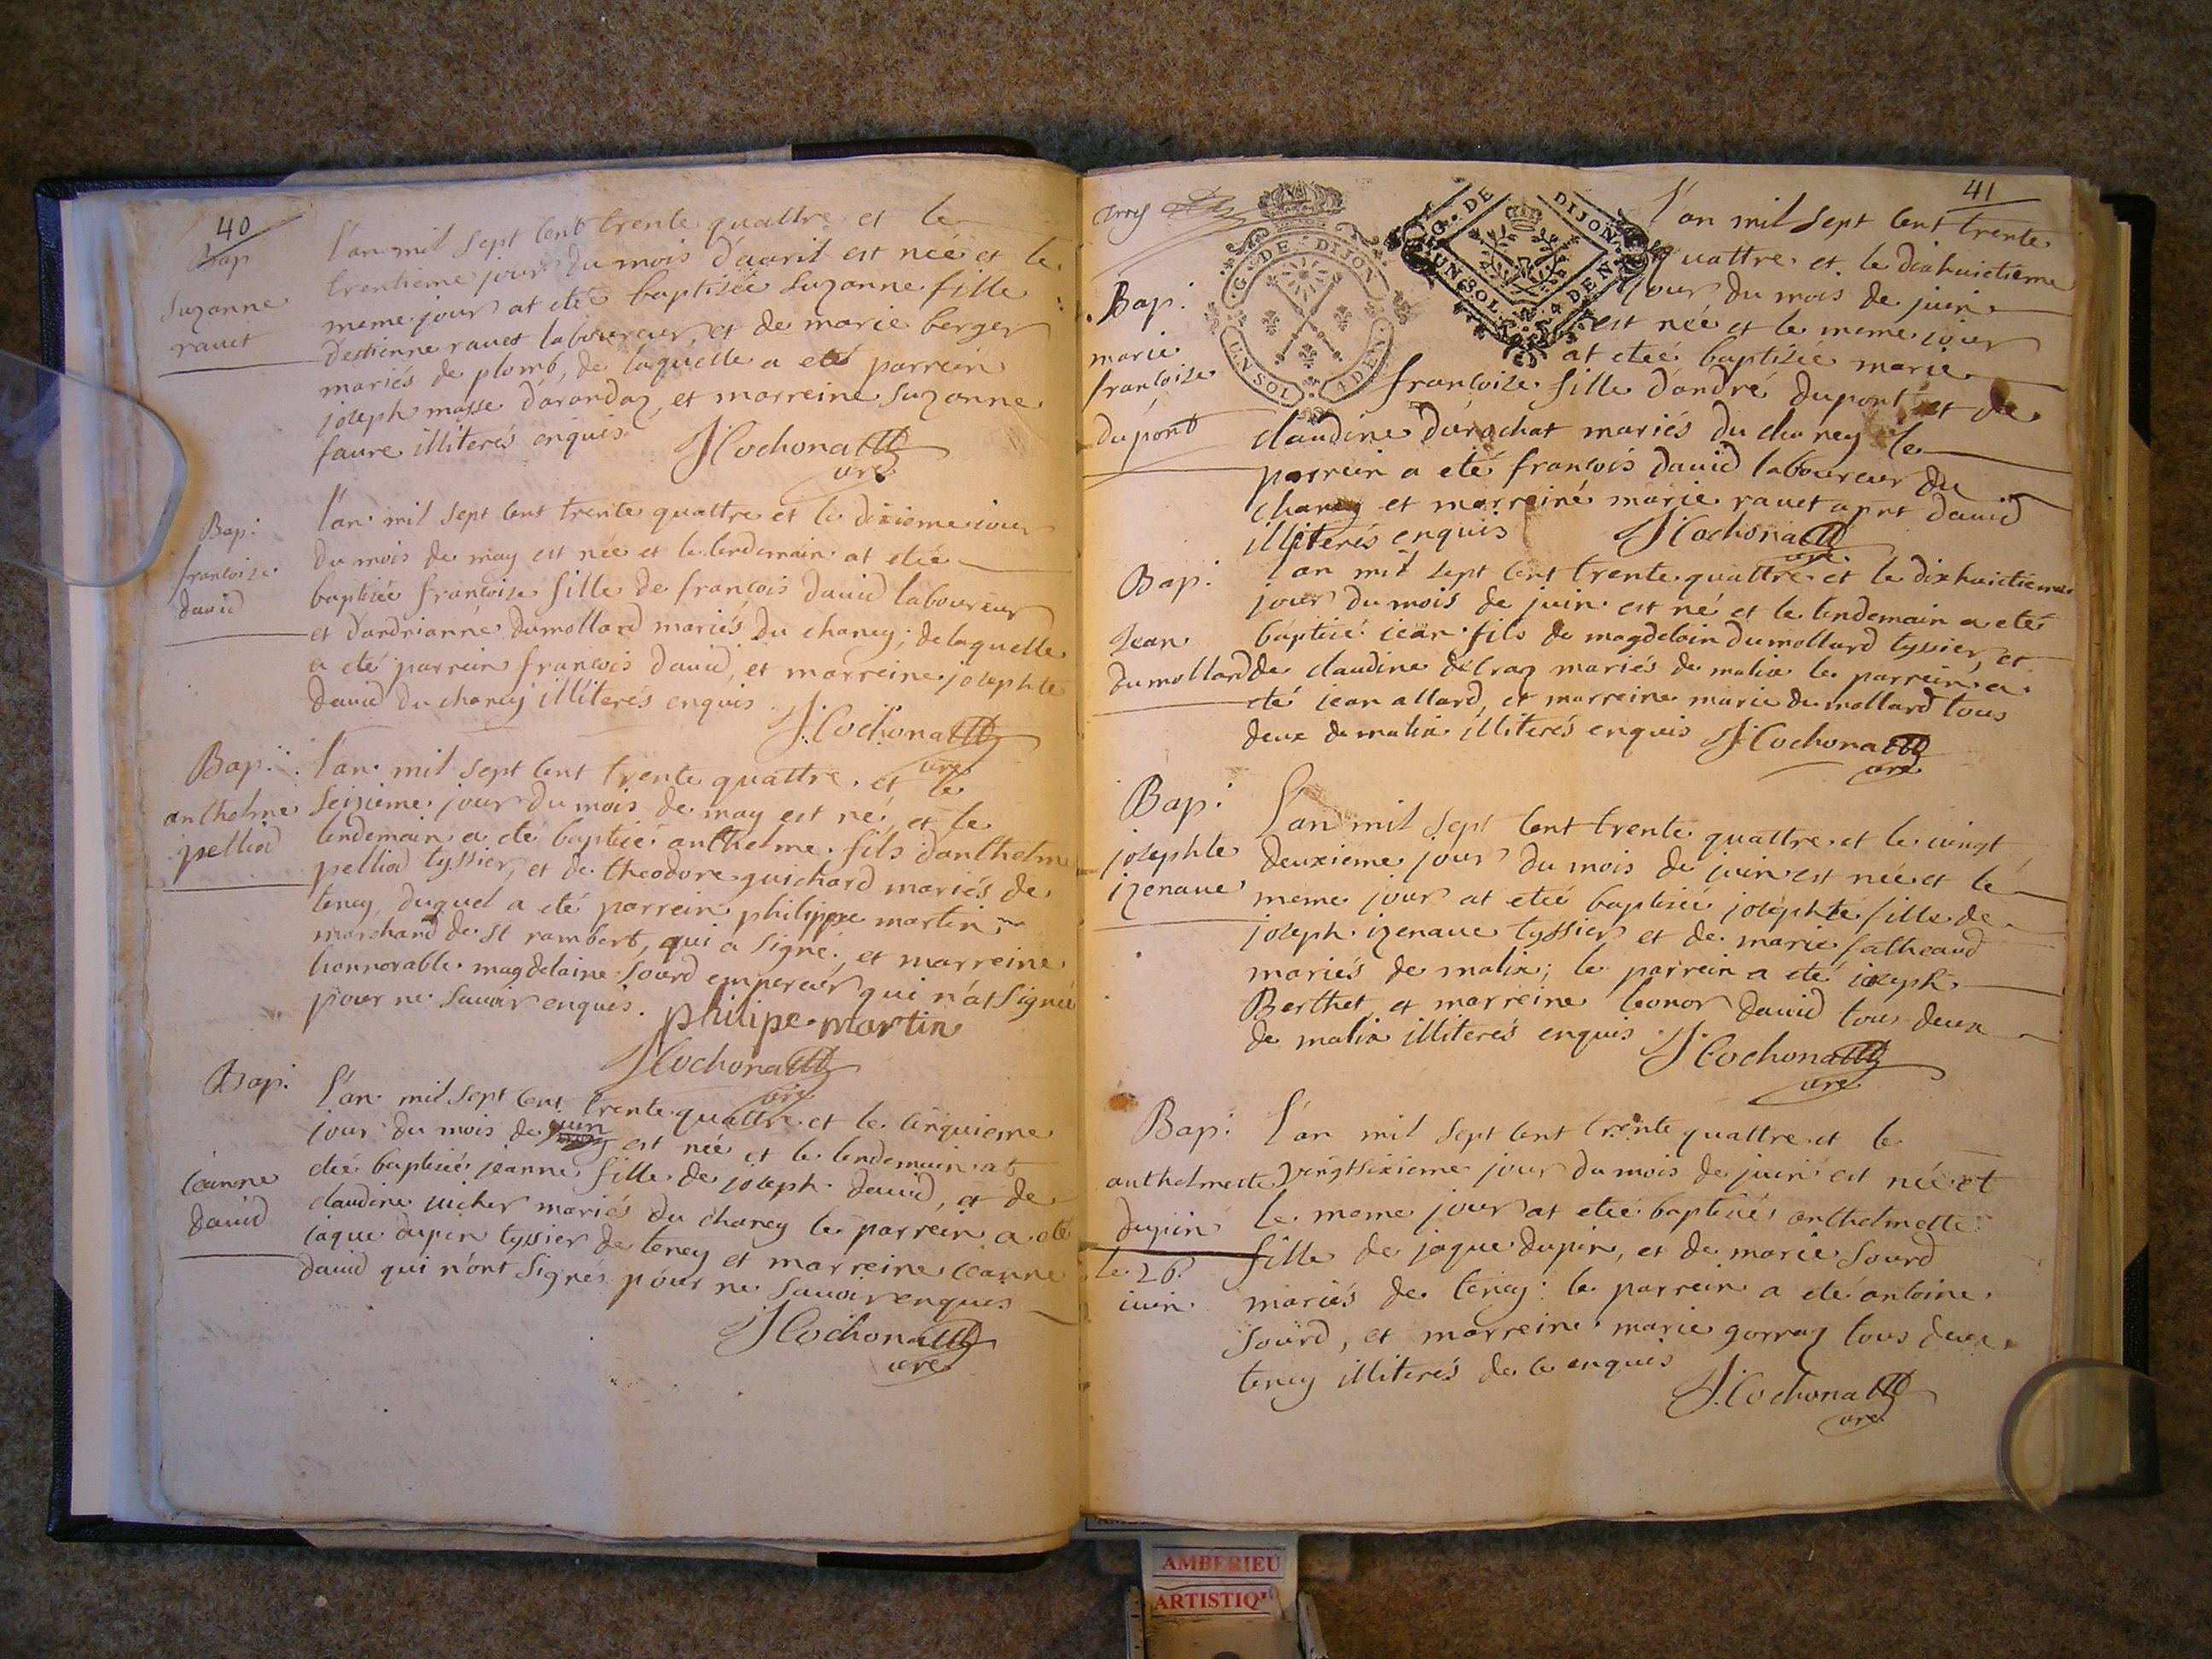 40
Bap
Suzanne
ravet
l'an mil sept cent trente quattre et le
trentieme jour du mois d'avril est née et le
meme jour at eté baptisée Suzanne fille
destienne ravet laboureur, et de marie berger
mariés de plomb, de laquelle a eté parrein
joseph masse d'arandaz, et marreine Suzanne
faure illiterés enquis
J Cochonatt
cure
Bap:
françoise
david
l'an mil sept cent trente quattre et le dixieme jour
du mois de may est née et le lendemain at etée
baptisée françoise fille de françois david laboureur
et dandrianne dumollard mariés du chaney; de laquelle
a eté parrein françois david, et marreine josephte
david du chaney illiterés enquis
J. Cochonatt
cure
Bap:
anthelme
pelliod
l'an mil sept cent trente quattre et le
seizieme jour du mois de may est né, et le
lendemain a eté baptisé anthelme fils d'anthelme
pelliod tyssier, et de theodore guichard mariés de
teney, duquel a eté parrein philippe martin
marchand de st rambert, qui a signé, et marreine
honnorable magdelaine sourd empereur qui n'at signée
pour ne savoir enquis. philipe martin
J Cochonatt
cure
Bap:
jeanne
david
l'an mil sept cent trente quattre et le cinquieme
jour du mois de juin est née et le lendemain at
eteé baptisée jeanne fille de joseph david, et de
claudine micher mariés du chaney le parrein a eté
jaque dupin tyssier de teney et marreine jeanne
david qui n'ont signés pour ne savoir enquis
J Cochonatt
cure
41
G. DE DIJON
UN SOL. 4 DEN.
G. DE DIJON
UN SOL. 4 DEN.
Bap:
marie
françoise
dupont
l'an mil sept cent trente
quattre et le dixhuictieme
jour du mois de juin
est née et le meme jour
at eteé baptisée marie
françoise fille d'andré dupont et de
claudine durochat mariés du chaney le
parrein a eté françois david laboureur du
chaney et marreine marie ravet apnt david
illiterés enquis
J Cochonatt
cure
Bap:
Jean
dumollard
l'an mil sept cent trente quattre et le dixhuictieme
jour du mois de juin est né et le lendemain a eté
baptisé jean fils de magdelain dumollard tyssier, et
de claudine delraz mariés de malix le parrein a
eté jean allard, et marreine marie dumollard tous
deux de malix illiterés enquis J Cochonatt
cure
Bap:
josephte
izenave
l'an mil sept cent trente quattre et le vingt
deuxieme jour du mois de juin est née et le
meme jour at eteé baptisée josephte fille de
joseph izenave tyssier et de marie falheaud
mariés de malix; le parrein a eté joseph
Berthet et marreine leonor david tous deux
de malix illiterés enquis
J Cochonatt
cure
Bap:
anthelmette
dupin
le 26.
juin
l'an mil sept cent trente quattre et le
vingtsixieme jour du mois de juin est née et
le meme jour at eteé baptisée anthelmette
fille de jaque dupin, et de marie sourd
mariés de teney: le parrein a eté antoine
sourd, et marreine marie gorraz tous deux
teney illiterés de ce enquis
J. Cochonatt
cure
AMBERIEU
ARTISTIQ